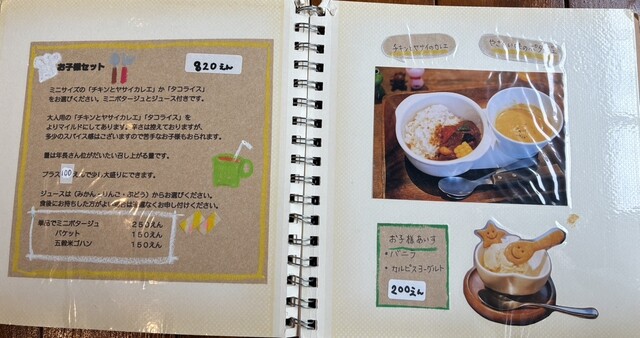 お子様セット
820えん
ミニサイズの「チキンとヤサイカレエ」か「タコライス」
をお選びください。ミニポタージュとジュース付きです。
大人用の「チキンとヤサイカレエ」「タコライス」を
よりマイルドにしてあります。辛さは控えておりますが、
多少のスパイス感はございますので苦手なお子様もおられます。
量は年長さん位がだいたい召し上がる量です。
プラス100えんで少し大盛りにできます。
ジュースは（みかん・りんご・ぶどう）からお選びください。
食後にお持ちした方がよい
なくお申し付けください。
単品でミニポタージュ 250えん
バケット 150えん
五穀米ゴハン 150えん
チキンとヤサイのカレエ
お子様あいす
・バニラ
・カルピスヨーグルト
200えん